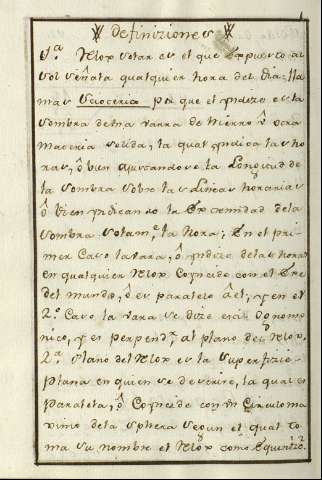 Definiziones
1.ª Relox Solar es el que Expuesto al
Sol Señala qualquier hora del dia, lla
mas Scioceria por que el Yndize es la
Sombra de Una Varra de hierro ô otra
materia Solida, la qual Yndica las ho
ras, ô bien ajustandose la Longitud de
la Sombra Sobre las Lineas horarias
ô bien Yndicando la Extremidad dela
Sombra Solam.te la hora; En el pri
mer Caso la Vara, ô Yndize delas horas
en qualquier Relox Coyncide con el Exe
del mundo, ô es paralelo âel, y en el
2.º Caso la vara se dize estilo gnomo
nico, y es perpend.r al plano del Relox.
2.ª Plano del Relox es la Superfizie
plana en quien se descrive, la qual es
paralela, ô Coyncide con Un Circulo ma
ximo dela Sphera Segun el qual to
ma Su nombre el Relox como